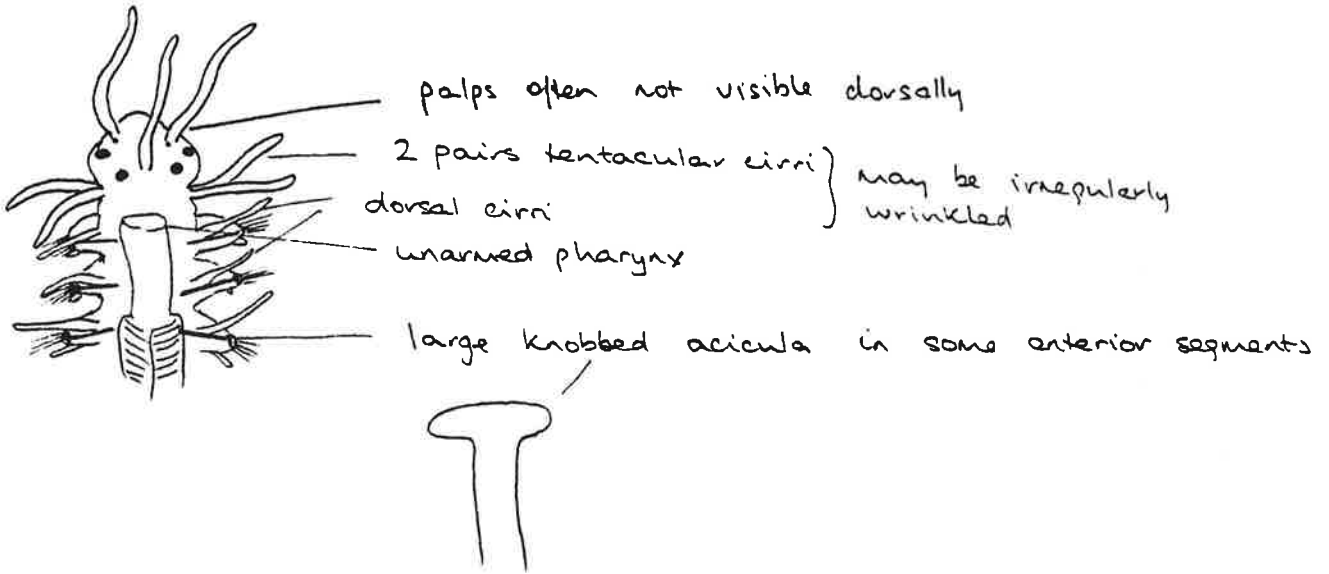 palps often not visible dorsally
2 pairs tentacular cirri } may be irregularly wrinkled
dorsal cirri
unarmed pharynx
large knobbed acicula in some anterior segments